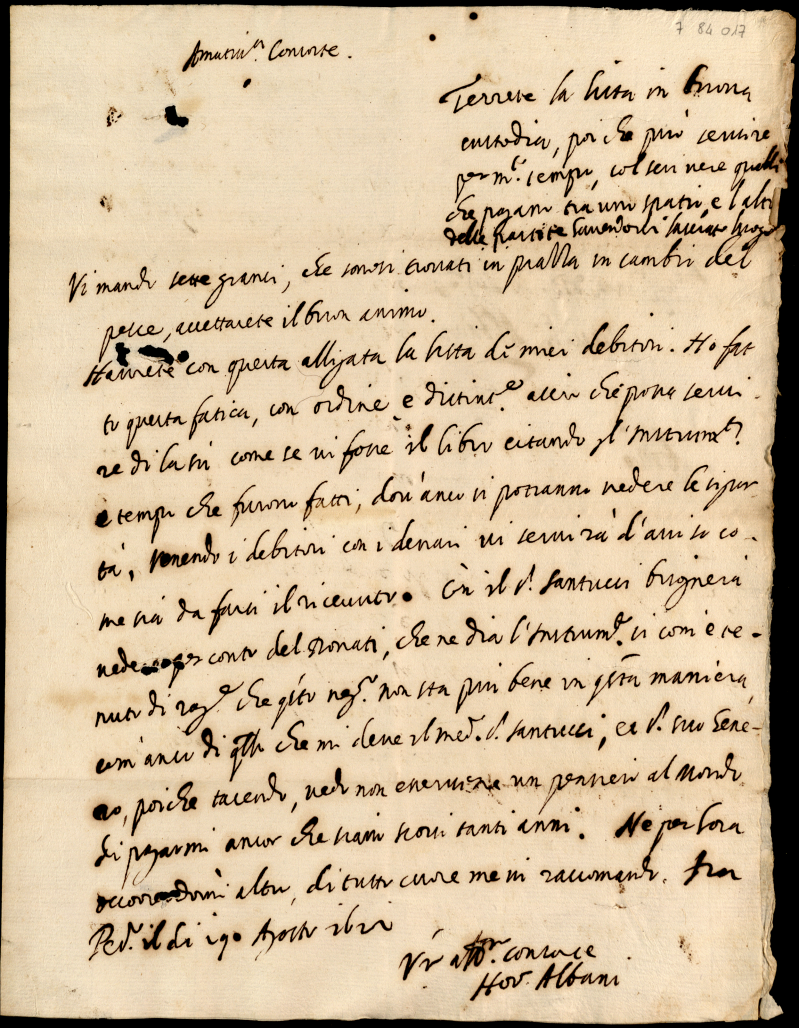 7 84 017
Amatiss.ma Consorte.
Terrete la lista in buona
custodia, poi che può servire
per m.to tempo, col scrivere quelli
che pagano tra uno spatio, e l'altro
delle partite havendovi lasciato luogo
Vi mando sette granci, che sonosi trovati in piazza in cambio del
pesce, accettarete il buon animo.
Haverete con questa alligata la lista di miei debitori. Ho fat
to questa fatica, con ordine e distint.e acciò che possa servi
re di la sù come se vi fosse il libro citando gl'Instrum.ti
e tempo che furono fatti, dov'anco si potranno vedere le sigur
tà, venendo i debitori con i denari vi servirà d'aviso co-
me sia da farsi il ricevuto. Con il S.r Santucci bisognerà
vedere per conto del Donati, che ne dia l'Instrum.to si com'è te-
nuto di rag.e che q.sto neg.o non sta più bene in q.sta maniera,
com'anco di q.lli che mi deve il med.o S.r Santucci, et S.r suo Gene-
ro, poiche tacendo, vedo non esservene un pensiero al Mondo
di pagarmi ancor che siano scorsi tanti anni. Ne per hora
occorrendomi altro, di tutto cuore me vi raccomando.
Ped.o il di 19 Agosto
V.ro aff.mo consorte
Hor. Albani